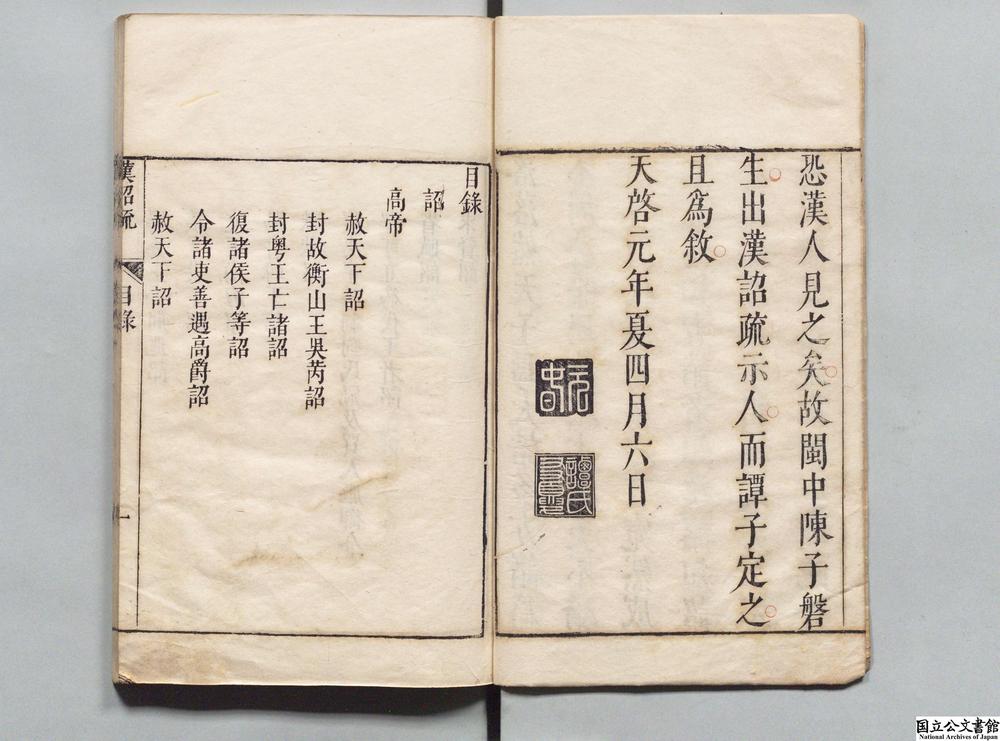 恐漢人見之矣故閩中陳子磐
生出漢詔疏示人而譚子定之
且爲敘
天啓元年夏四月六日
元春
譚氏友夏
目錄
詔
高帝
赦天下詔
封故衡山王吳芮詔
封粵王亡諸詔
復諸侯子等詔
令諸吏善遇高爵詔
赦天下詔
漢詔疏
目錄
一
国立公文書館
National Archives of Japan